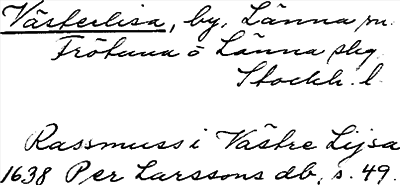 Västerlisa, by, Länna sn.
Frötuna o Länna skg
Stockh. l.
Rassmuss i Västre Lijsa
1638 Per Larssons db, s. 49.